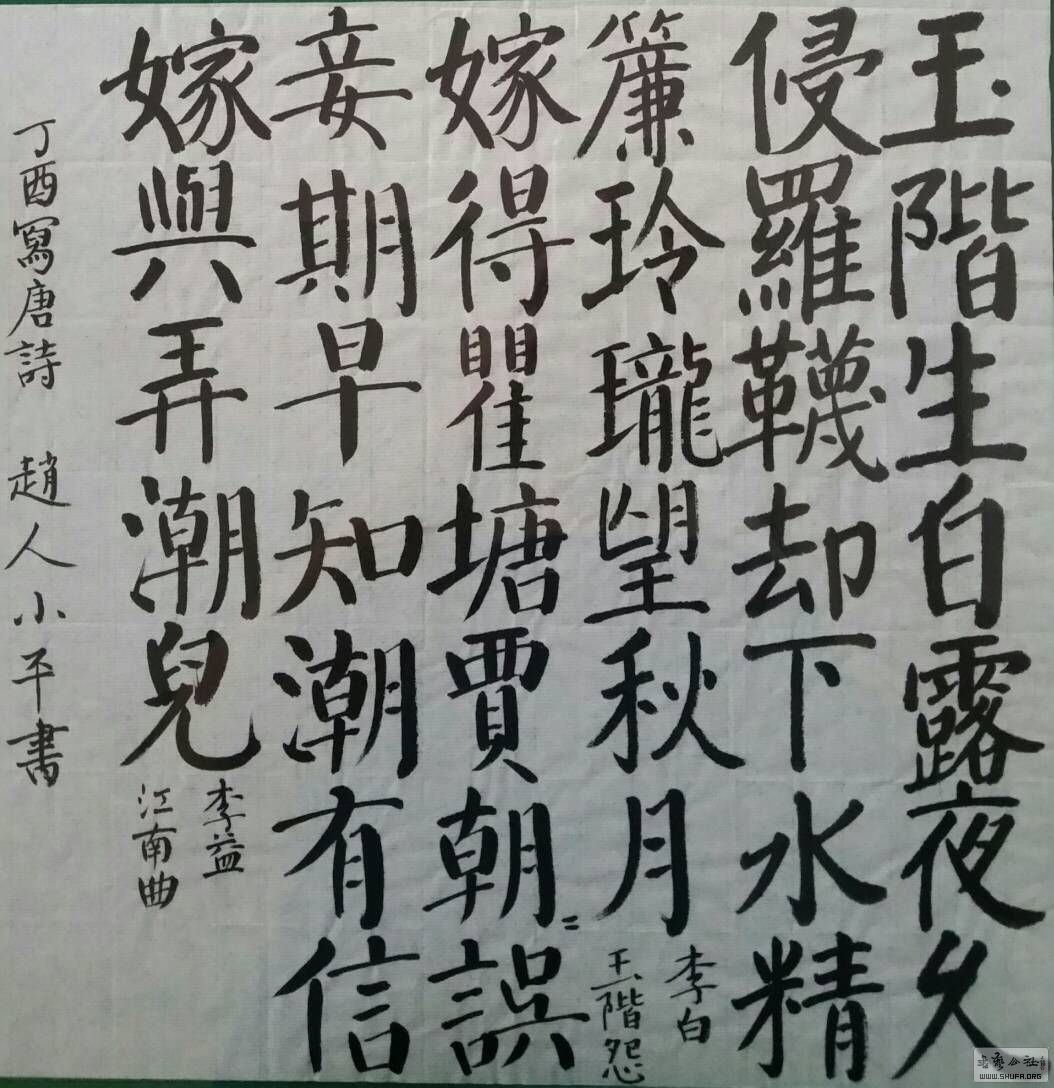 玉階生白露夜久
侵羅韈却下水精
簾玲瓏望秋月
李白
玉階怨
嫁得瞿塘賈朝〻誤
妾期早知潮有信
嫁與弄潮兒
李益
江南曲
丁酉寫唐詩 趙人小平書
書藝公社
WWW.SHUFA.ORG